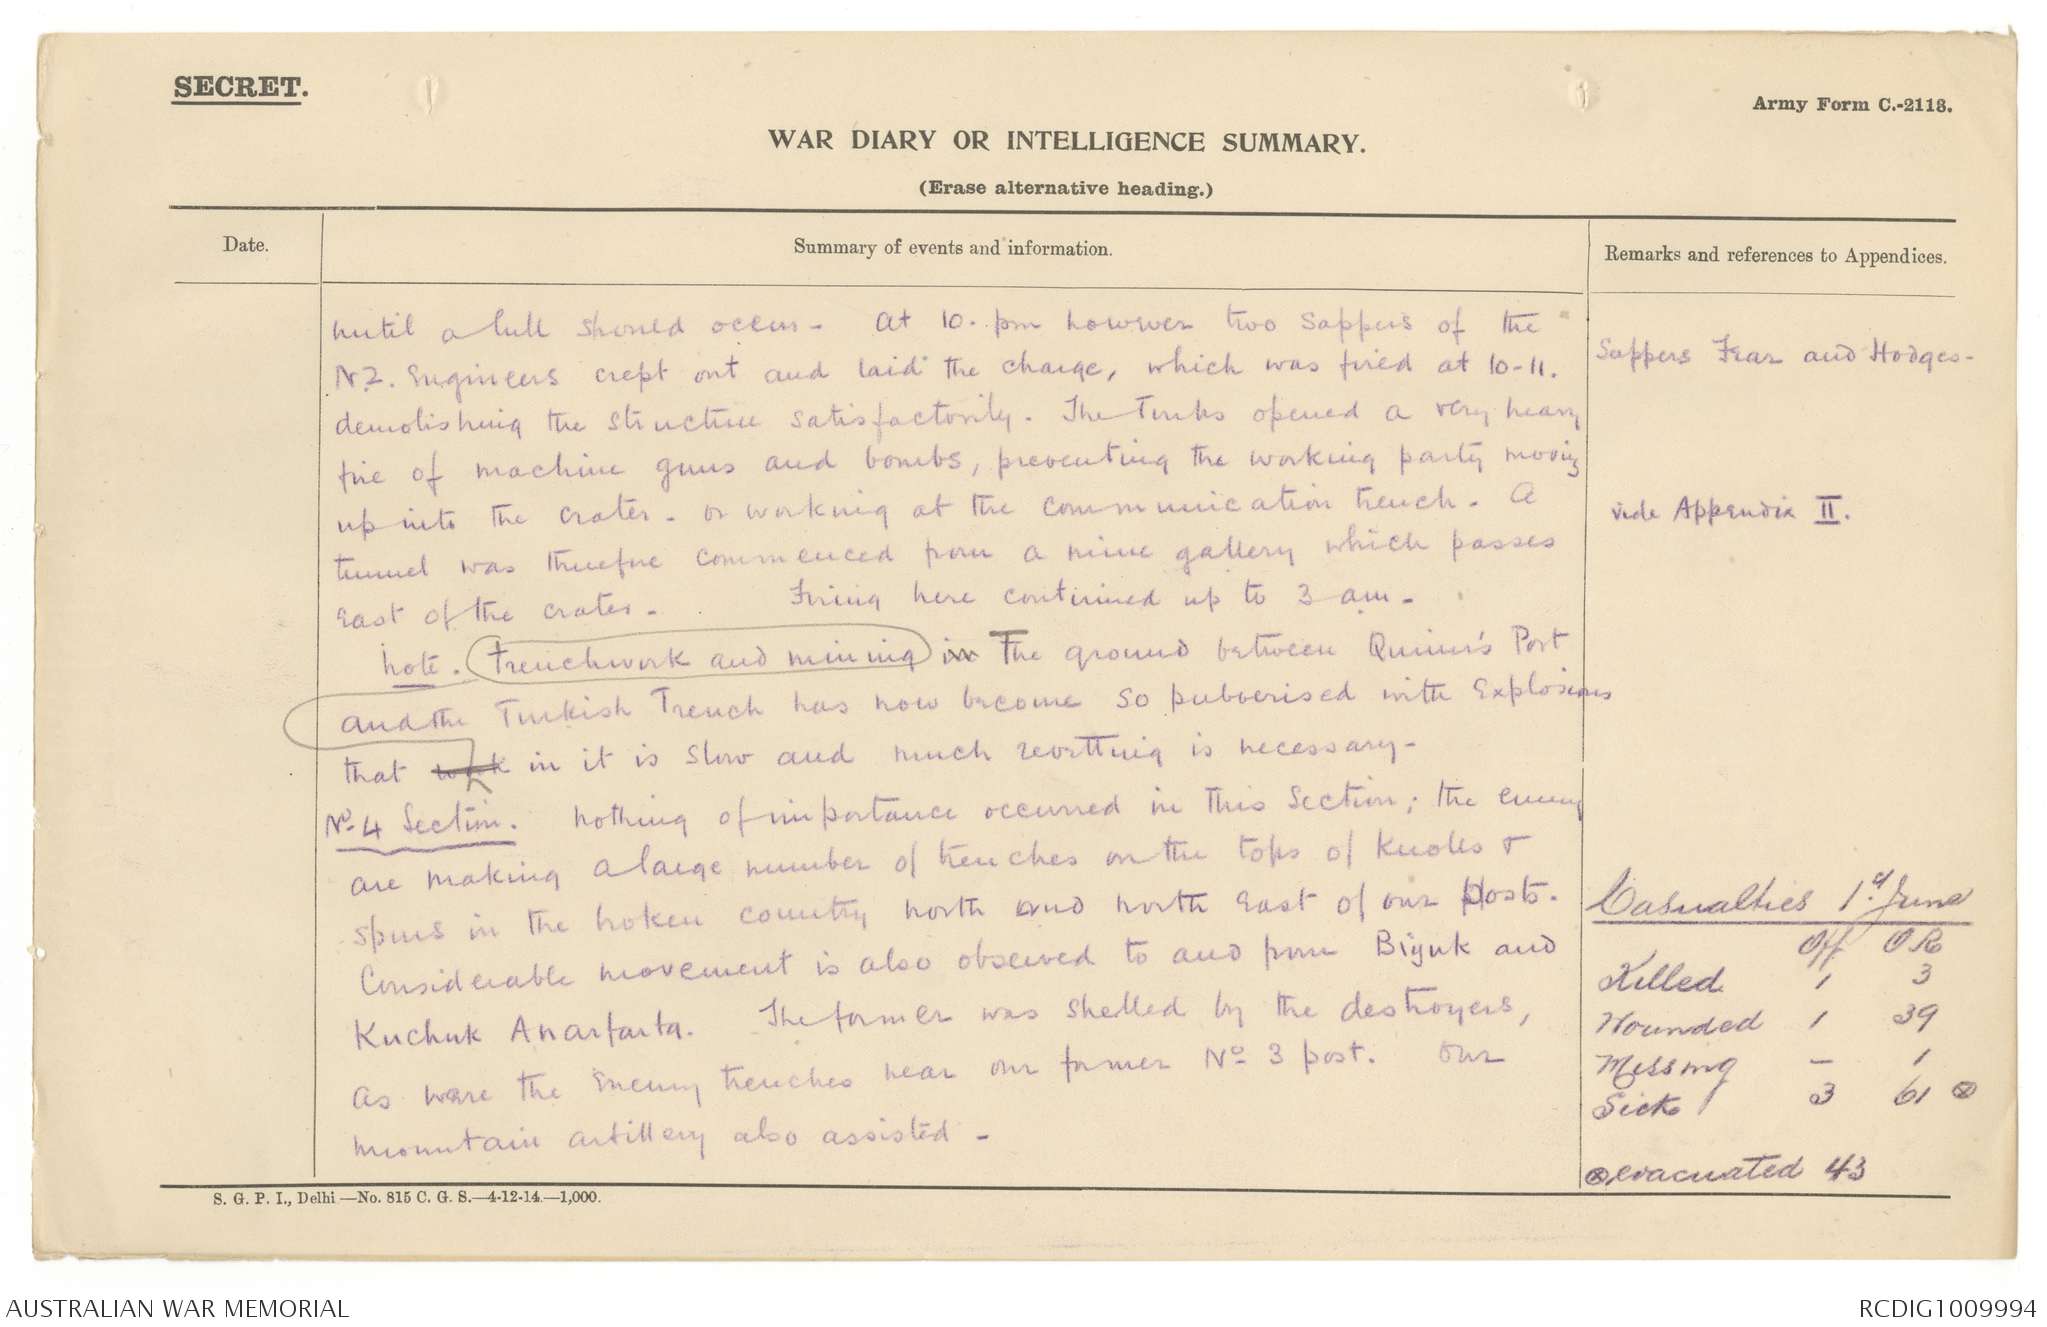 SECRET.
Army Form C.-2118.
WAR DIARY OR INTELLIGENCE SUMMARY.
(Erase alternative heading.)
Date.
Summary of events and information.
Remarks and references to Appendices.
until a lull should occur - At 10. pm however two Sappers of the
NZ. Engineers crept out and laid the charge, which was fired at 10-11.
demolishing the structure satisfactorily. The Turks opened a very heavy
fire of machine guns and bombs, preventing the working party moving
up into the crater - or working at the communication trench. A
tunnel was therefore commenced from a mine gallery which passes
East of the crater - Firing here continued up to 3 am -
Note. Trenchwork and mining in The ground between Quinn's Post
and the Turkish Trench has now become so pulverised with Explosions
that work in it is slow and much revetting is necessary -
No 4 Section. Nothing of importance occurred in this Section; the enemy
are making a large number of trenches on the tops of Knolls &
spurs in the broken country north and north East of our Posts.
Considerable movement is also observed to and from Biyuk and
Kuchuk Anarfarta. The former was shelled by the destroyers,
as were the Enemy trenches near our former No 3 post. Our
mountain artillery also assisted -
Sappers Fear and Hodges -
vide Appendix II.
Casualties 1st June
Off OR
Killed 1 3
Wounded 1 39
Missing - 1
Sick 3 61 ⊗
⊗ evacuated 43
S. G. P. I., Delhi—No. 815 C. G. S.—4-12-14.—1,000.
AUSTRALIAN WAR MEMORIAL
RCDIG1009994